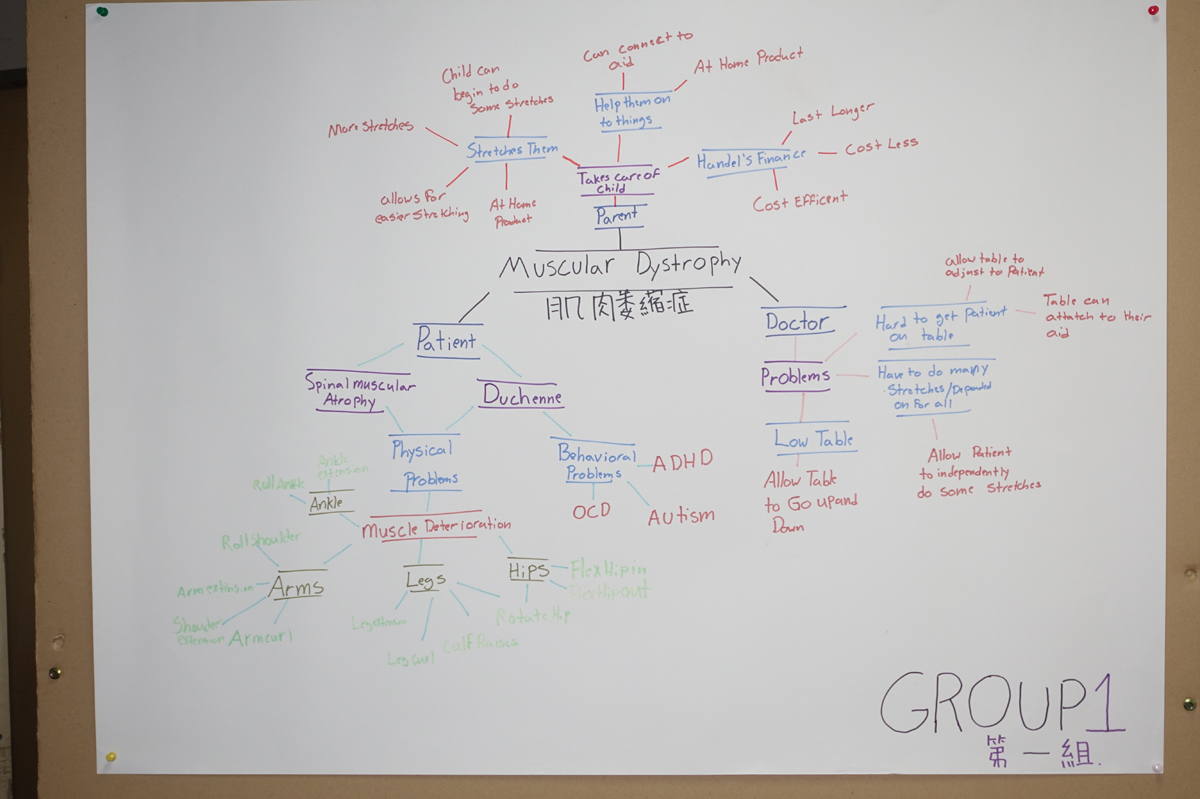 Can connect to
aid
At Home Product
Child can
begin to do
some stretches
Help them on
to things
More stretches
Stretches Them
Last Longer
Handel's Finance
Cost Less
Cost Efficent
allows for
easier stretching
At Home
Product
Takes care of
child
Parent
Muscular Dystrophy
肌肉萎縮症
Patient
Spinal muscular
Atrophy
Duchenne
Physical
Problems
Behavioral
Problems
ADHD
OCD
Autism
Muscle Deterioration
Ankle
extension
Roll Ankle
Ankle
Roll Shoulder
Arms
Arm extinsion
Shoulder
extension
Arm curl
Legs
Leg extension
Leg curl
Calf Raises
Hips
Flex Hip in
Flex Hip out
Rotate Hip
Doctor
Problems
Hard to get patient
on table
allow table to
adjust to Patient
Table can
attatch to their
aid
Have to do many
stretches/Depended
on for all
Allow Patient
to independently
do some stretches
Low Table
Allow Table
to Go up and
Down
GROUP 1
第一組.